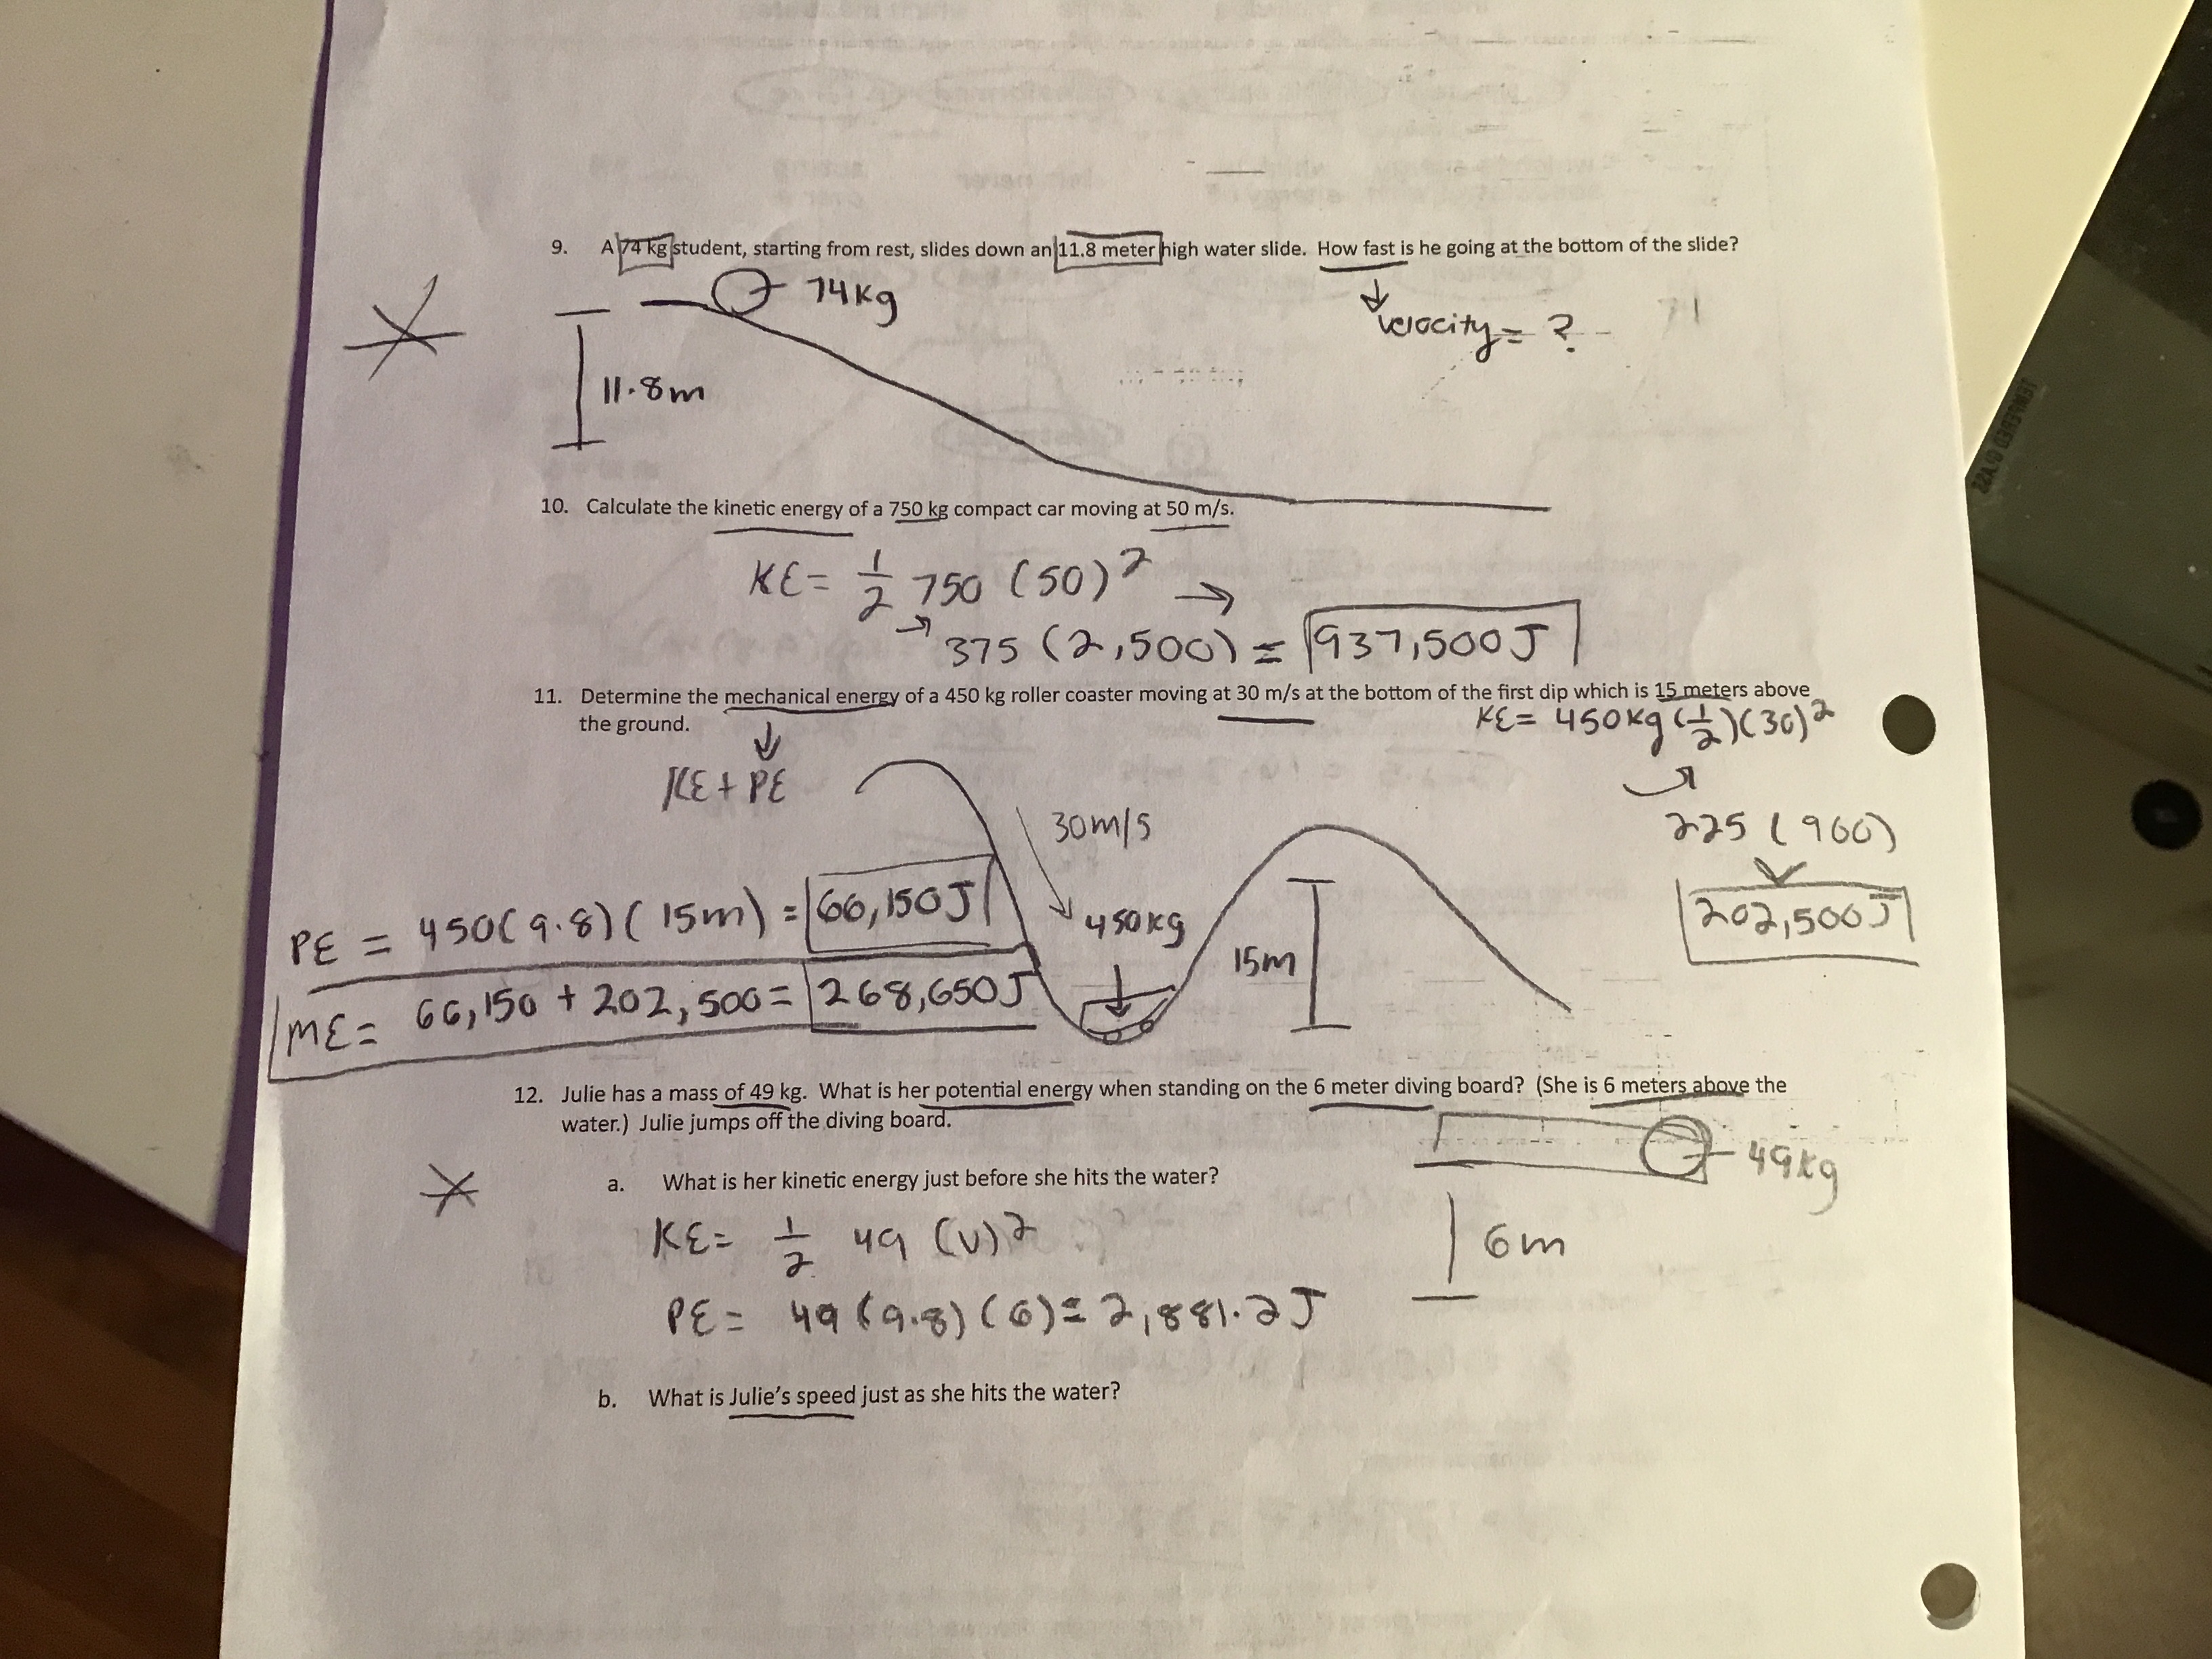 9. A 74 kg student, starting from rest, slides down an 11.8 meter high water slide. How fast is he going at the bottom of the slide?
74kg
velocity = ?
11.8m
10. Calculate the kinetic energy of a 750 kg compact car moving at 50 m/s.
KE = 1/2 750 (50)² →
→ 375 (2,500) = 937,500J
11. Determine the mechanical energy of a 450 kg roller coaster moving at 30 m/s at the bottom of the first dip which is 15 meters above
the ground.
KE = 450kg (1/2)(30)²
KE + PE
30m/s
225 (900)
202,500J
PE = 450(9.8)(15m) = 66,150J
450kg
15m
ME = 66,150 + 202,500 = 268,650J
12. Julie has a mass of 49 kg. What is her potential energy when standing on the 6 meter diving board? (She is 6 meters above the
water.) Julie jumps off the diving board.
49kg
a. What is her kinetic energy just before she hits the water?
KE = 1/2 49 (v)²
6m
PE = 49 (9.8) (6) = 2,881.2J
b. What is Julie's speed just as she hits the water?
TEMPERED GLASS